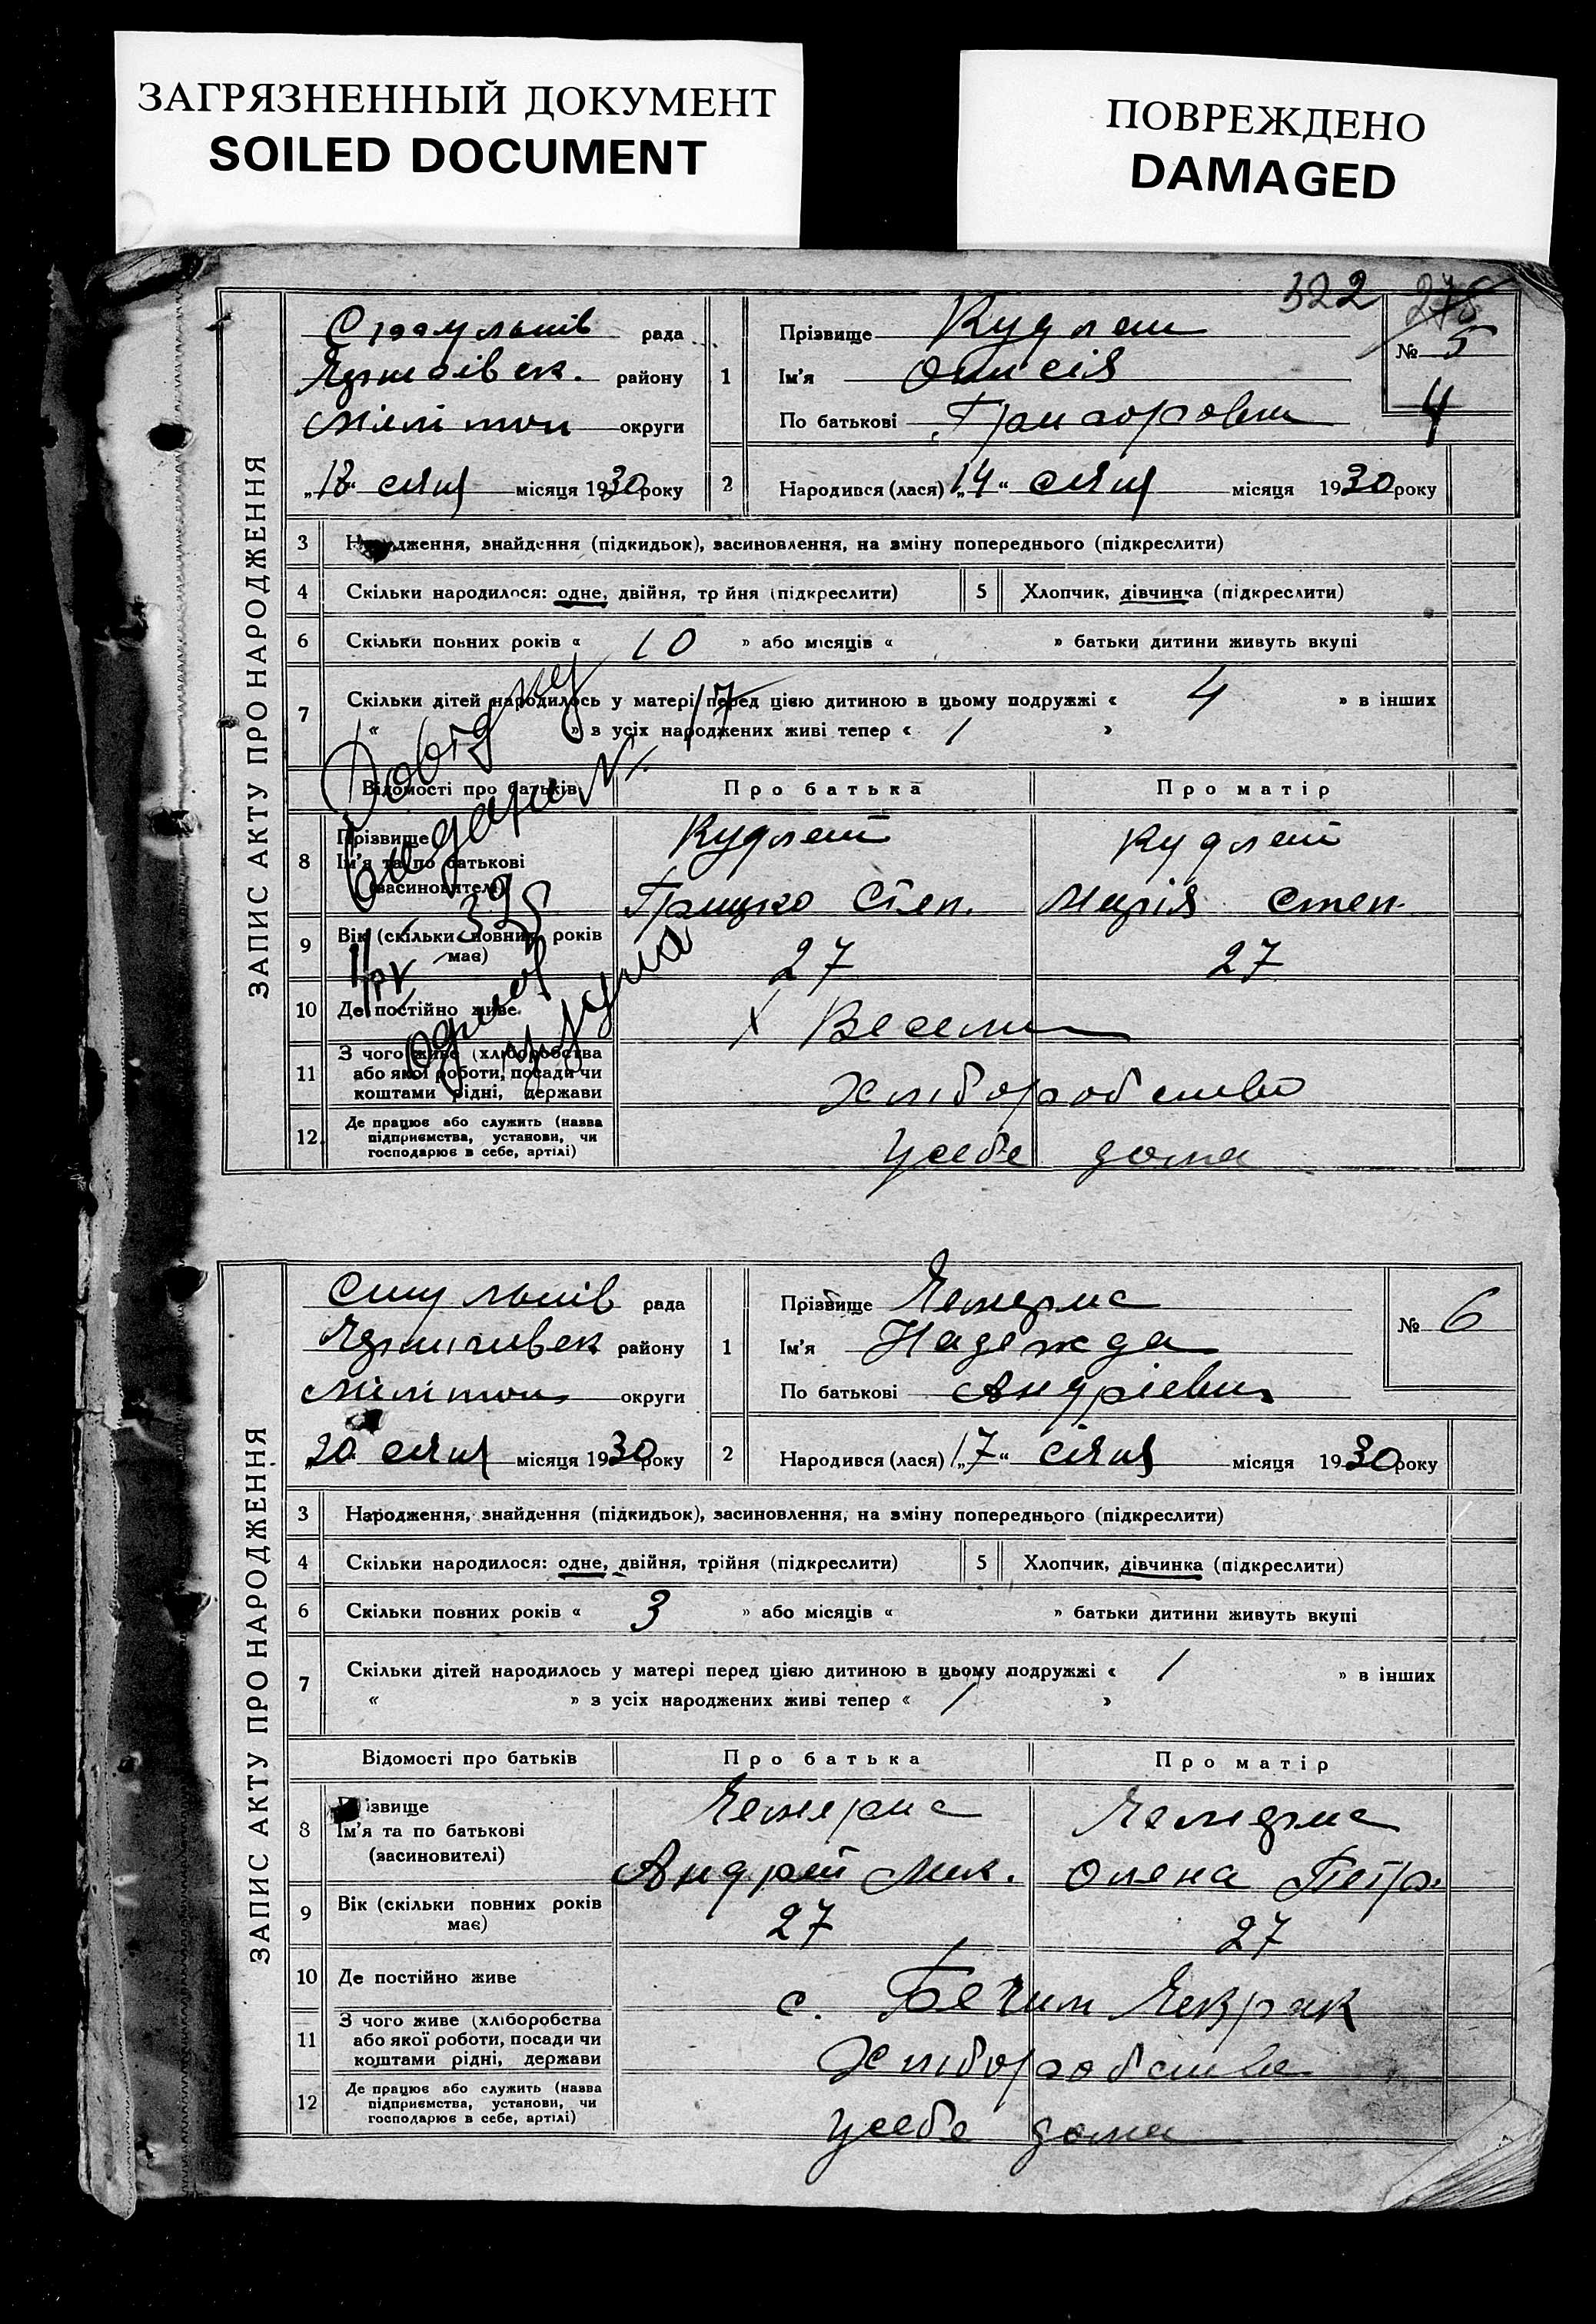 ЗАГРЯЗНЕННЫЙ ДОКУМЕНТ
SOILED DOCUMENT
ПОВРЕЖДЕНО
DAMAGED
322
ЗАПИС АКТУ ПРО НАРОДЖЕННЯ
рада
району
округи
"18" січня місяця 1930 року
1
Прізвище
Ім'я
По батькові
№ 5
4
2 Народився (лася) "14" січня місяця 1930 року
3 Народження, знайдення (підкидьок), засиновлення, на зміну попереднього (підкреслити)
4 Скільки народилося: одне, двійня, трійня (підкреслити)
5 Хлопчик, дівчинка (підкреслити)
6 Скільки повних років « 10 » або місяців « » батьки дитини живуть вкупі
7 Скільки дітей народилось у матері перед цією дитиною в цьому подружжі « 4 » в інших
« » з усіх народжених живі тепер « 1 »
Відомості про батьків Про батька Про матір
8 Прізвище
Ім'я та по батькові
(засиновителі)
Грицько Степ. Марія Степ.
9 Вік (скільки повних років має) 27 27
10 Де постійно живе Веселе
11 З чого живе (хліборобства або якої роботи, посади чи коштами рідні, держави Хліборобство
12. Де працює або служить (назва підприємства, установи, чи господарює в себе, артілі) у себе дома
Довідку
видано
ЗАПИС АКТУ ПРО НАРОДЖЕННЯ
рада
району
округи
"20" січня місяця 1930 року
1
Прізвище
Ім'я Надежда
По батькові Андрієвна
№ 6
2 Народився (лася) "17" січня місяця 1930 року
3 Народження, знайдення (підкидьок), засиновлення, на зміну попереднього (підкреслити)
4 Скільки народилося: одне, двійня, трійня (підкреслити)
5 Хлопчик, дівчинка (підкреслити)
6 Скільки повних років « 3 » або місяців « » батьки дитини живуть вкупі
7 Скільки дітей народилось у матері перед цією дитиною в цьому подружжі « 1 » в інших
« » з усіх народжених живі тепер « 1 »
Відомості про батьків Про батька Про матір
8 Прізвище
Ім'я та по батькові
(засиновителі)
Андрій Мик. Олена Петр.
9 Вік (скільки повних років має) 27 27
10 Де постійно живе с. Бегим Чокрак
11 З чого живе (хліборобства або якої роботи, посади чи коштами рідні, держави Хліборобства
12 Де працює або служить (назва підприємства, установи, чи господарює в себе, артілі) у себе дома